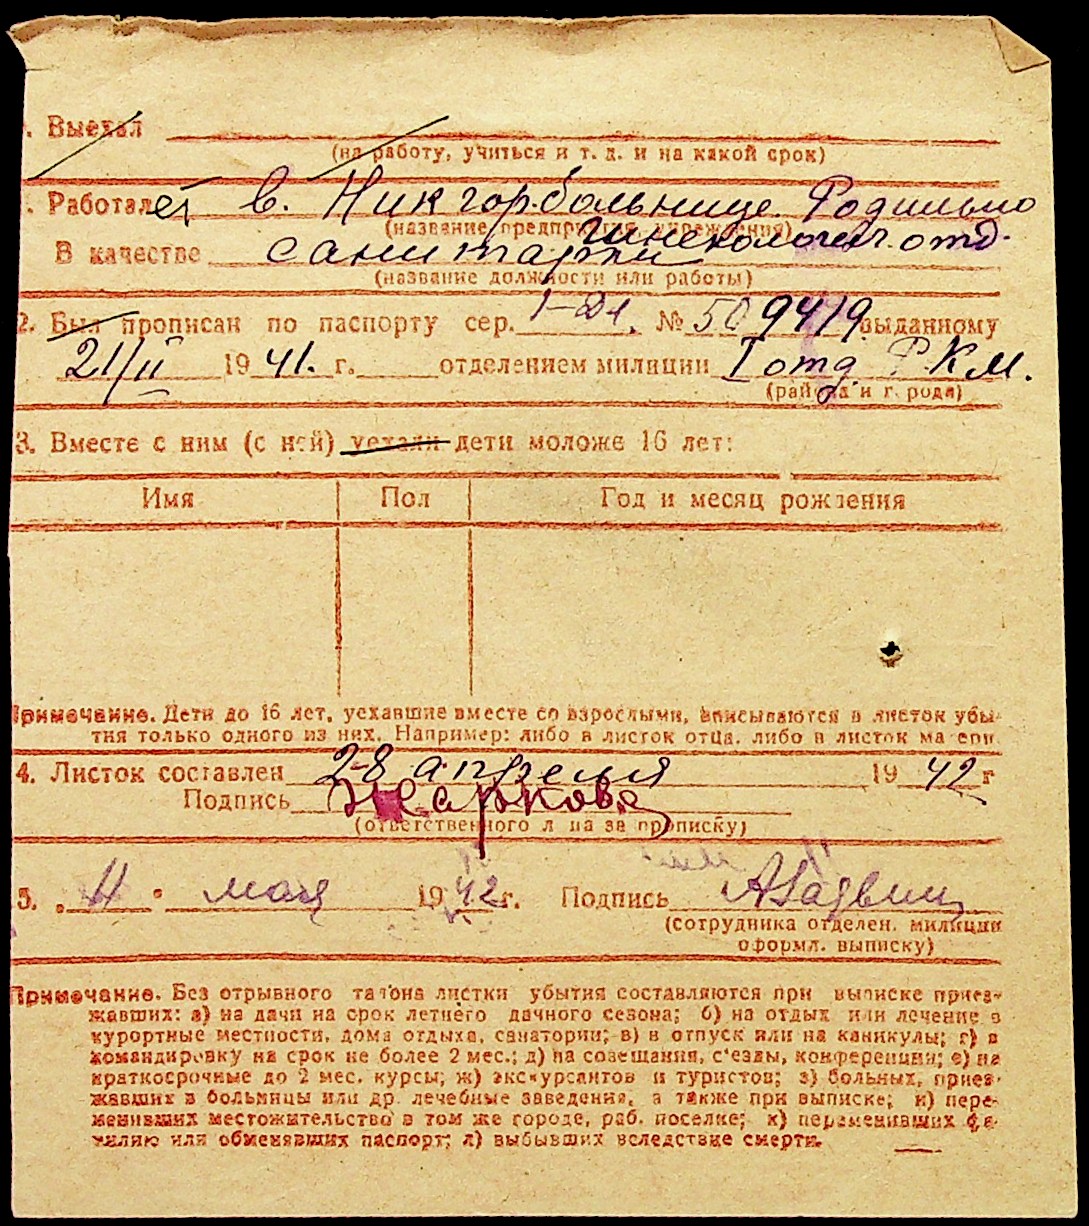 . Выехал
(на работу, учиться и т. д. и на какой срок)
. Работает в. Ник гор.больнице. Родильно
(название предприятия, учреждения)
гинекологич. отд.
В качестве санитарки
(название должности или работы)
2. Был прописан по паспорту сер. № 509419. выданному
21/II 1941. г. отделением милиции I отд Р.К.М.
(района и города)
3. Вместе с ним (с ней) уехали дети моложе 16 лет:
Имя Пол Год и месяц рождения
Примечание. Дети до 16 лет, уехавшие вместе со взрослыми, вписываются в листок убы-
тия только одного из них. Например: либо в листок отца. либо в листок матери.
4. Листок составлен 28 апреля 1942 г
Подпись Жаркова
(ответственного лица за прописку)
5. „11" мая 1942 г. Подпись
(сотрудника отделен. милиции
оформл. выписку)
Примечание. Без отрывного талона листки убытия составляются при выписке приез-
жавших: а) на дачи на срок летнего дачного сезона; б) на отдых или лечение в
курортные местности, дома отдыха, санатории; в) в отпуск или на каникулы; г) в
командировку на срок не более 2 мес.; д) на совещания, с'езды, конференции; е) на
краткосрочные до 2 мес. курсы; ж) экскурсантов и туристов; з) больных, приез-
жавших в больницы или др. лечебные заведения, а также при выписке; и) пере-
менивших местожительство в том же городе, раб. поселке; к) переменивших фа-
милию или обменявших паспорт; л) выбывших вследствие смерти.